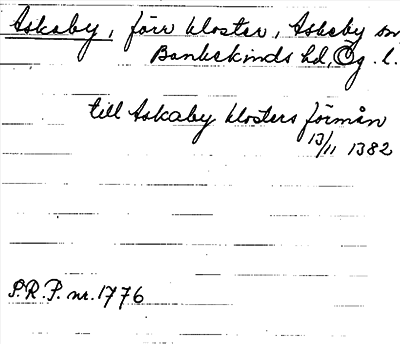 Askaby, förr kloster, Askeby sn
Bankekinds hd, Ög. l.
till Askaby klosters förmån
13/11 1382
S.R.P. nr. 1776